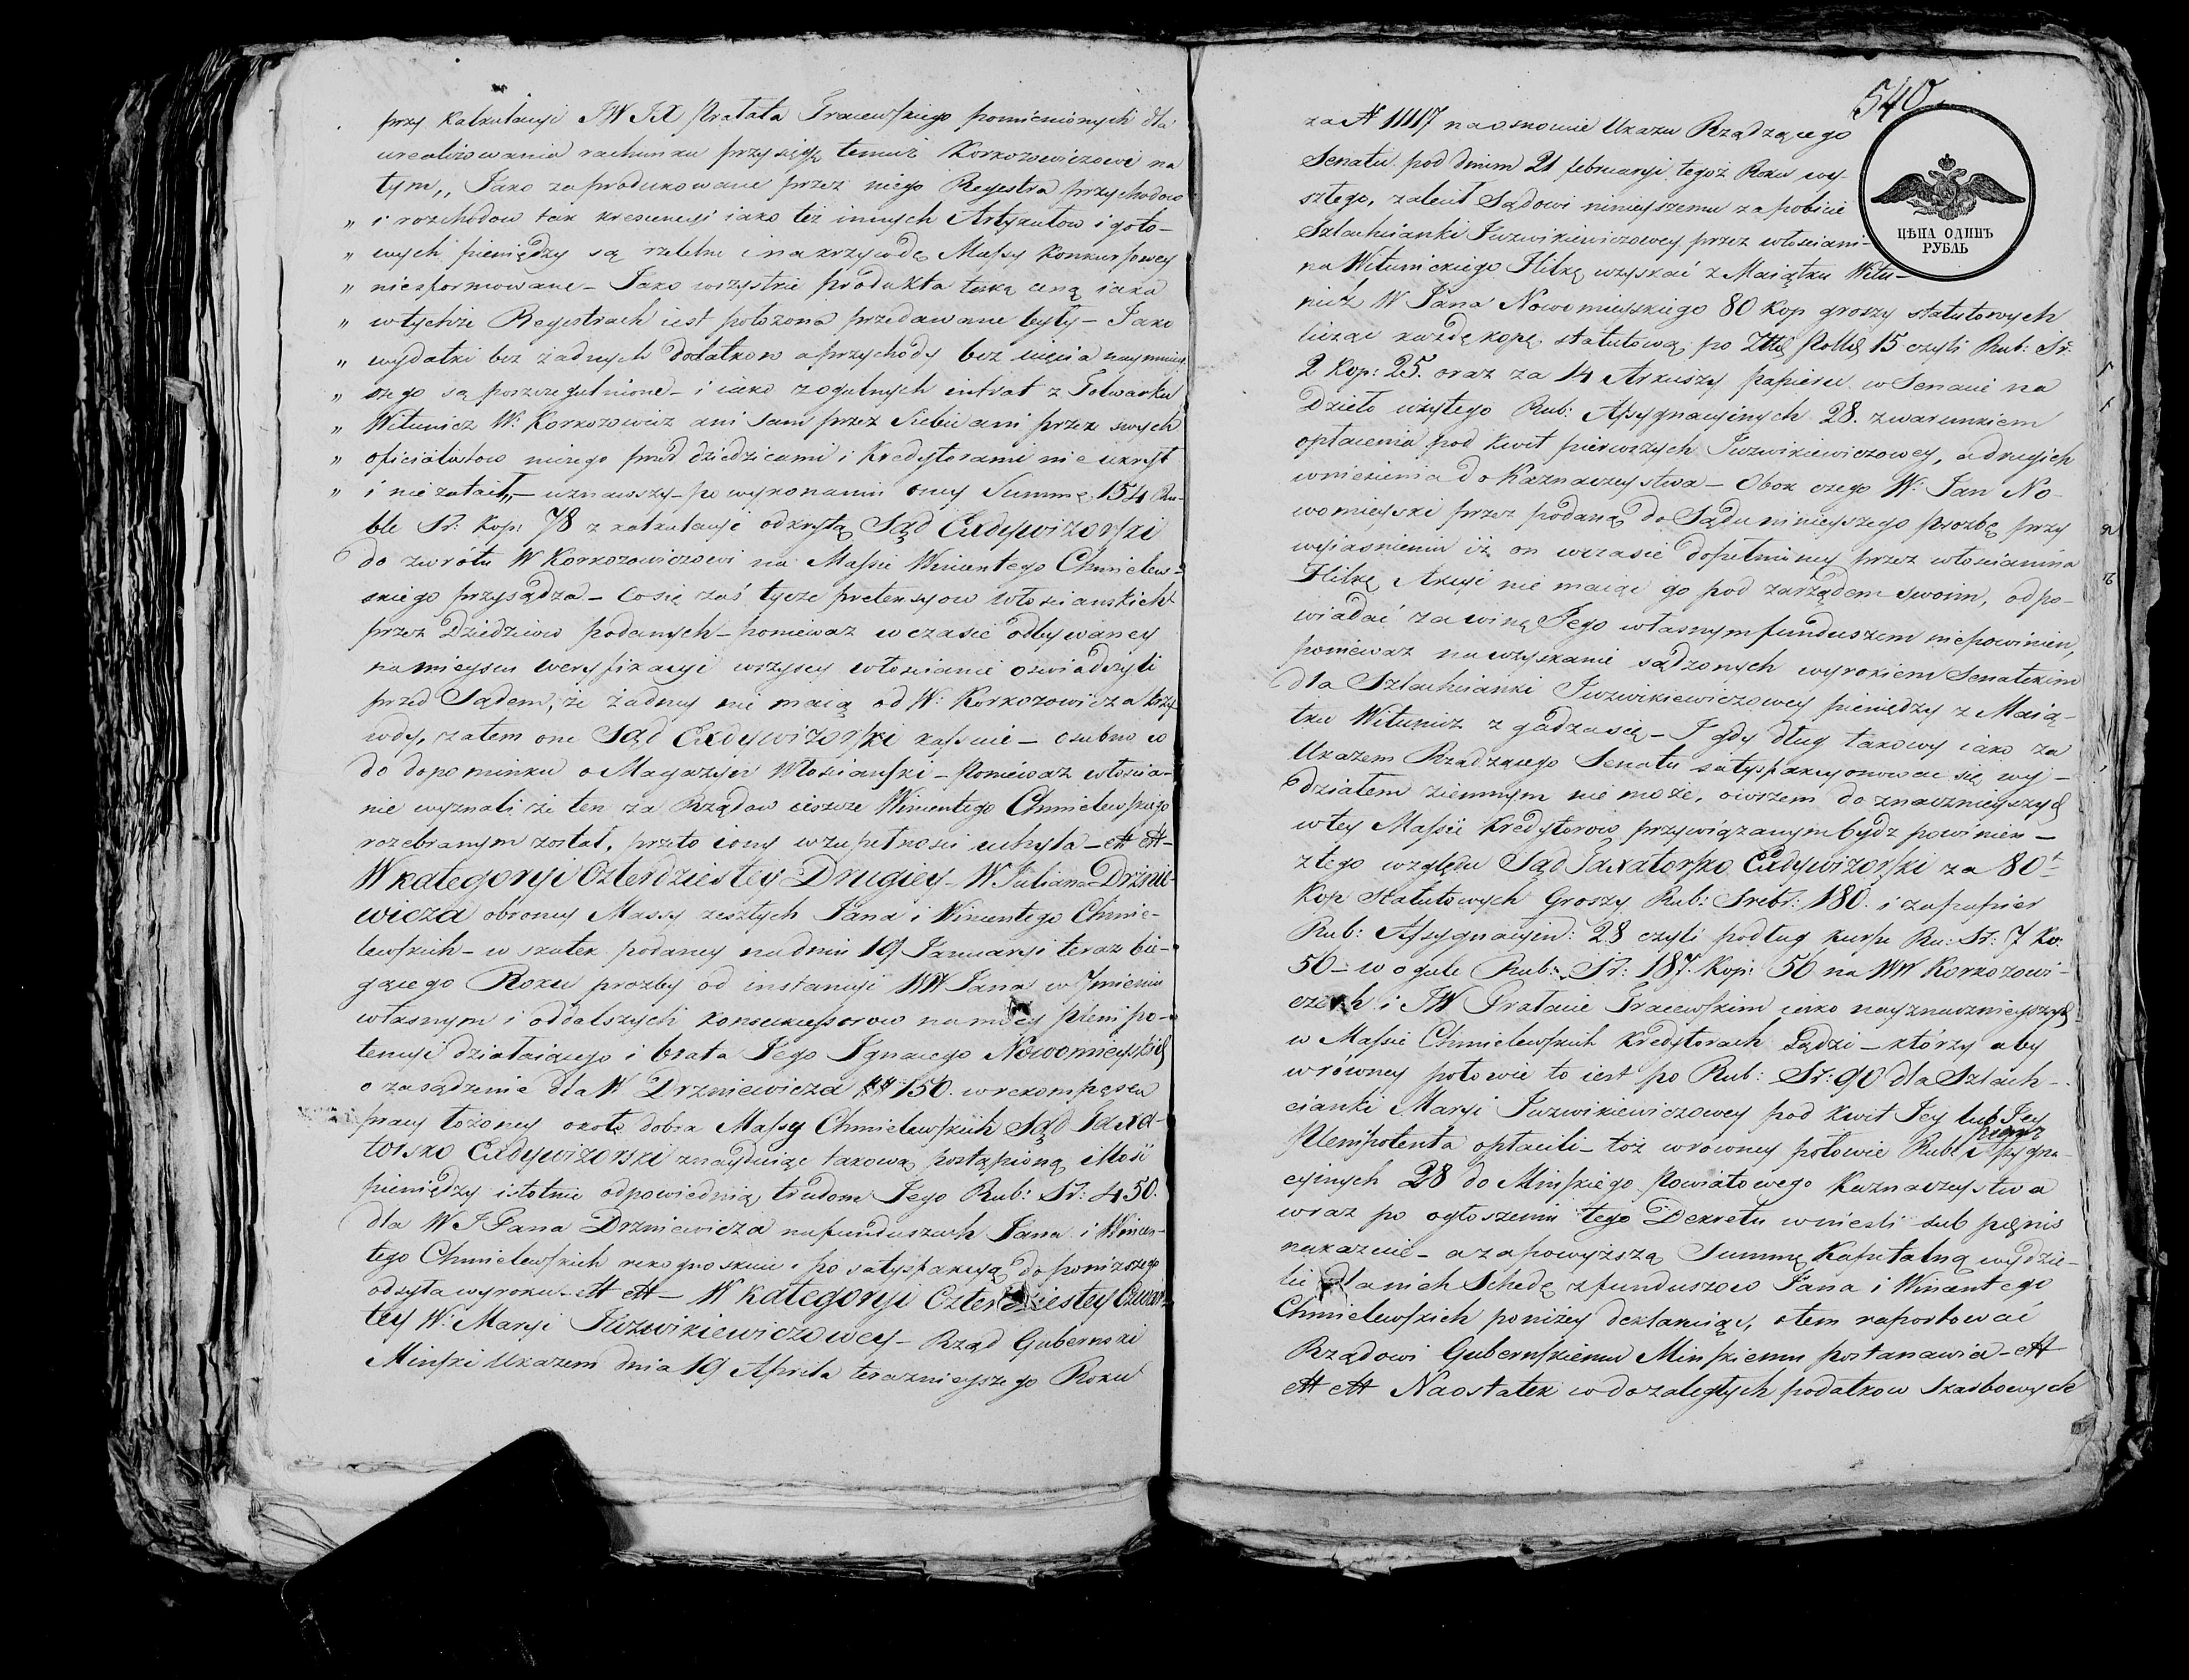 przy Kalkulacyi JW JX Prałata Tracewskiego pomienionych dla
urealizowania rachunku przysięgę temuż Korkozowiczowi na
tym,, Jako zaprodukowane przez niego Regestra przychodow
„ i rozchodow tak krescencyi iako też innych Artykułow i goto-
„ wych pieniędzy są rzetelne i na krzywdę Massy Konkursowey
„ niesformowane - Jako wszystkie produkta taką ceną iaka
„ w tychże Regestrach iest położona przedawane były - Jako
„ wydatki bez żadnych dodatkow a przychody bez uięcia naymniey
„ szego są poszczegulnione - i iako z ogulnych intrat z Folwarku
„ Witunicz W: Korkozowicz ani sam przez Siebie ani przez swych
„ oficialistow niczego przed dziedzicami i Kredytorami nie ukrył
„ i nie zataił,, - uznawszy - po wykonaniu oney Summę 154 Ru-
ble Sr: Kop: 78 z kalkulacyi odkrytą Sąd Exdywizorski
do zwrótu W Korkozowiczowi na Massie Wincentego Chmielew-
skiego przysądza - Co się zaś tycze pretensyow Włosciańskich
przez Dziedzicow podanych - ponieważ w czasie odbywaney
na mieyscu weryfikacyi wszyscy włoscianie oswiadczyli
przed Sądem, że żadney nie maią od W: Korkozowicza krzy-
wdy, zatem one Sąd Exdywizorski kassuie - osobno w
do dopominku o Magazyn Włosciański - Ponieważ włoscia-
nie wyznali że ten za Rządow ieszcze Wincentego Chmielewskiego
rozebranym został, przeto iony w zupełnosci uchyla - # # -
W kategoryi Czterdziestey Drugiey - W. Juliana Drźnie-
wicza obroncy Massy zeszłych Jana i Wincentego Chmie-
lewskich - w skutek podaney na dniu 19 Januaryi teraz bie-
gącego Roku prozby od instancyi WW Jana w Jmieniu
własnym i oddalszych konsukcessorow na mocy plenipo-
tencyi działaiącego i brata Jego Jgnacego Nowomieyskich
o zasądzenie dla W Drzniewicza 150. w rekompęsę
pracy łożoney około dobra Massy Chmielewskich Sąd Taxa-
torsko Exdywizorski znayduiąc takową postąpioną ilość
pieniędzy istotnie odpowiednią trudom Jego Rub: Sr: 450.
dla W J Pana Drzniewicza na funduszach Jana i Wincen-
tego Chmielewskich rekognoskuie i po satysfakcyą do poniższego
odsyła wyroku - # # - W Kategoryi Czterdziestey Czwar-
tey W: Maryi Juzwikiewiczowey - Rząd Gubernski
Minski Ukazem dnia 19 Aprila teraznieyszego Roku
540
ЦѢНА ОДИНЪ
РУБЛЬ
za N 11117 na osnowie Ukazu Rządzącego
Senatu pod dniem 21 februaryi tegoż Roku wy-
szłego, zalecił Sądowi ninieyszemu za pobicie
Szlachcianki Juzwikiewiczowey przez włosciani-
na Witunickiego Hilkę uzyskać z Maiątku Witu-
nicz W Jana Nowomieyskiego 80 kop groszy statutowych
licząc każdę kopę statutową po Złłł Polld 15 czyli Rub: Sr:
2 Kop: 25. oraz za 14 Arkuszy papieru w Senacie na
Dzieło użytego Rub: Assygnacyinych 28. z warunkiem
opłacenia pod kwit pierwszych Juzwikiewiczowey, a drugich
wniesienia do Kaznaczeystwa - Obok czego W: Jan No-
womieyski przez podaną do Sądu ninieyszego prozbę przy
wyiasnieniu iż on w czasie dopełnioney przez włoscianina
Hilkę Akcyi nie maiąc go pod zarządem swoim, odpo-
wiadać za winę Jego własnym funduszem nie powinien,
ponieważ na uzyskanie sądzonych wyrokiem Senatskim
dla Szlachcianki Juzwikiewiczowey pieniędzy z Maią-
tku Witunicz zgadza się - I gdy dług takowy iako za
Ukazem Rządzącego Senatu satysfakcyonować się wy-
działem ziemnym nie może, owszem do znacznieyszych
w tey Massie Kredytorow przywiązanym bydz powinien -
z tego względu Sąd Taxatorsko Exdywizorski za 80
Kop Statutowych Groszy Rub: Srebr: 180. i za papier
Rub: Assygnacyin: 28 czyli podług kursu Ru: Sr: 7 ko:
50 - w ogule Rub: Sr: 187. Kop: 50 na WW Korkozowi-
czach i JW Prałacie Tracewskim iako nayznacznieyszych
w Massie Chmielewskich Kredytorach Sądzi - którzy aby
w równey połowie to iest po Rub: Sr: 90 dla Szlach-
cianki Maryi Juzwikiewiczowey pod kwit Jey lub Jey
Plenipotenta opłacili - toż w równey połowie Rubli Assygna-
cyinych 28 do Minskiego Powiatowego Kaznaczeystwa
wraz po ogłoszeniu tego Dekretu wniesli sub pęnis
nakazuie - a za powyższą Summę Kapitalną wydzie-
lić dla nich Schedę z funduszow Jana i Wincentego
Chmielewskich poniżey deklaruiąc, o tem raportować
Rządowi Gubernskiemu Minskiemu postanawia - #
# # Naostatek wdo zaległych podatkow Skarbowych